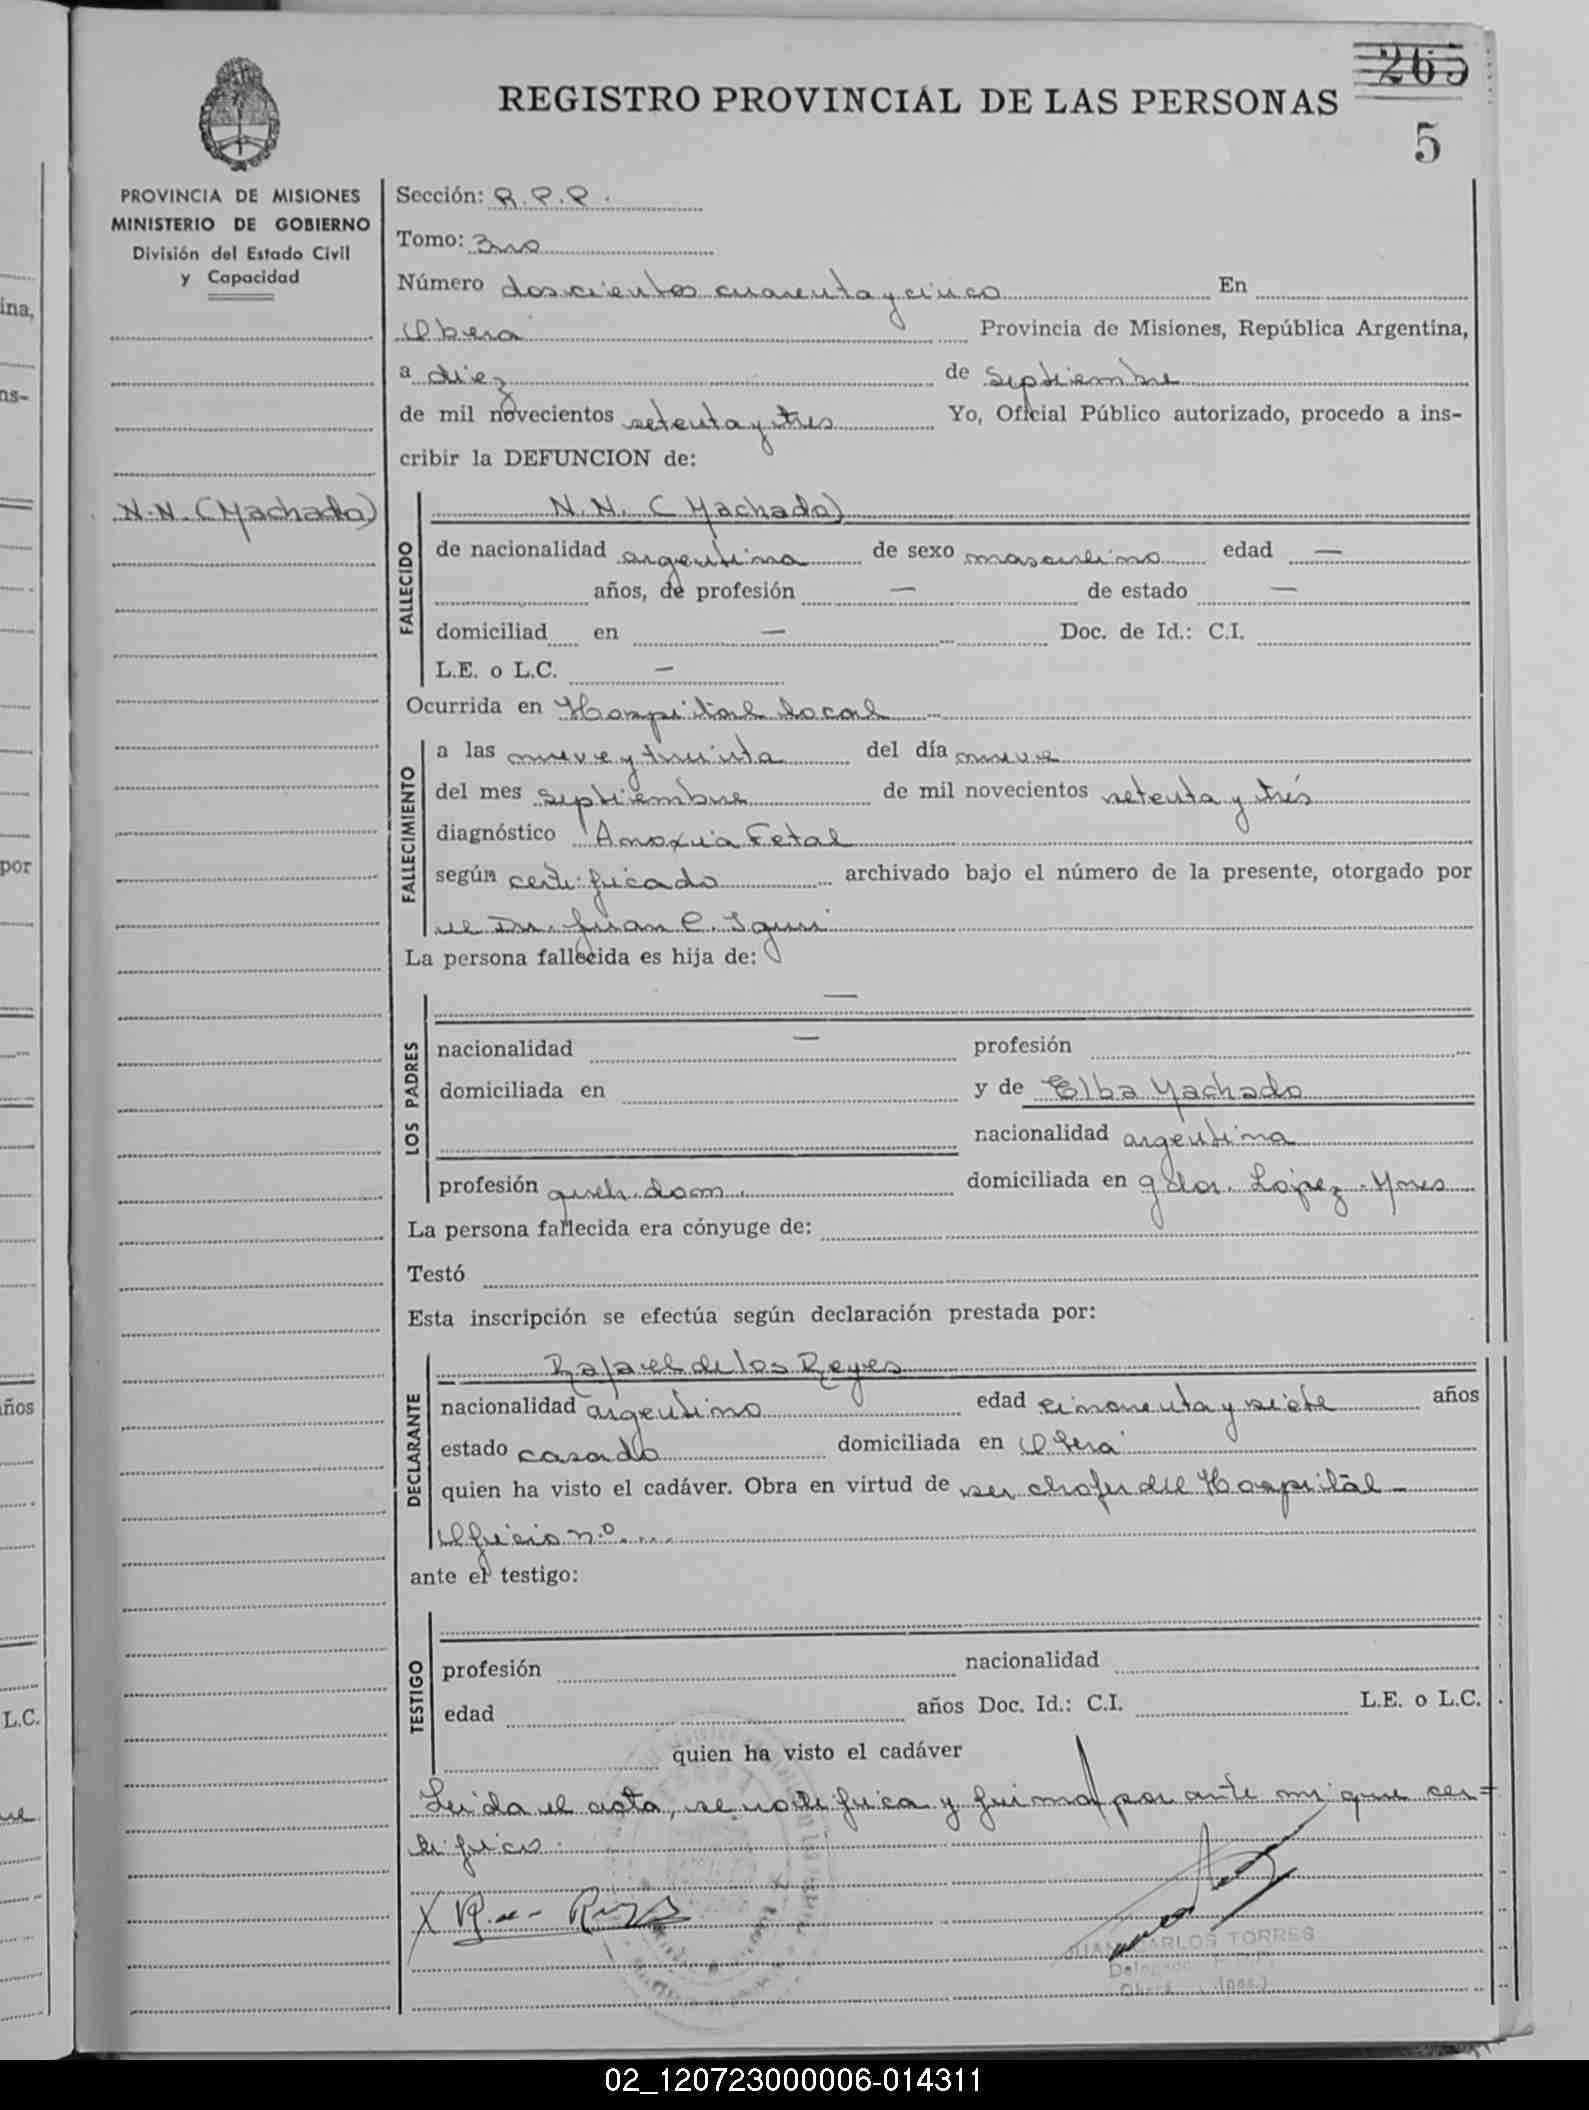 265
REGISTRO PROVINCIAL DE LAS PERSONAS
5
PROVINCIA DE MISIONES
MINISTERIO DE GOBIERNO
División del Estado Civil
y Capacidad
N.N. (Machado)
Sección: R.P.P.
Tomo: 3ro
Número doscientos cuarenta y cinco En
Obera Provincia de Misiones, República Argentina,
a diez de Septiembre
de mil novecientos setenta y tres Yo, Oficial Público autorizado, procedo a ins-
cribir la DEFUNCION de:
FALLECIDO
N.N. (Machado)
de nacionalidad argentina de sexo masculino edad —
años, de profesión — de estado —
domiciliad en — Doc. de Id.: C.I.
L.E. o L.C. —
Ocurrida en Hospital local
FALLECIMIENTO
a las nueve y treinta del día nueve
del mes Septiembre de mil novecientos setenta y trés
diagnóstico Anoxia Fetal
según certificado archivado bajo el número de la presente, otorgado por
el Dr. Juan C.
La persona fallecida es hija de:
LOS PADRES
—
nacionalidad — profesión
domiciliada en y de Elba Machado
nacionalidad argentina
profesión queh. dom. domiciliada en gdor. Lopez - Mnes
La persona fallecida era cónyuge de:
Testó
Esta inscripción se efectúa según declaración prestada por:
DECLARANTE
Rafael de los Reyes
nacionalidad argentino edad cincuenta y siete años
estado casado domiciliada en Oberá
quien ha visto el cadáver. Obra en virtud de ser chofer del Hospital -
Oficio n.º ....
ante el testigo:
TESTIGO
profesión nacionalidad
edad años Doc. Id.: C.I. L.E. o L.C.
quien ha visto el cadáver
Leida el acta, se ratifica y firma por ante mi que cer=
tifico.
X
JUAN CARLOS TORRES
ina,
ns-
por
años
L.C.
02_120723000006-014311